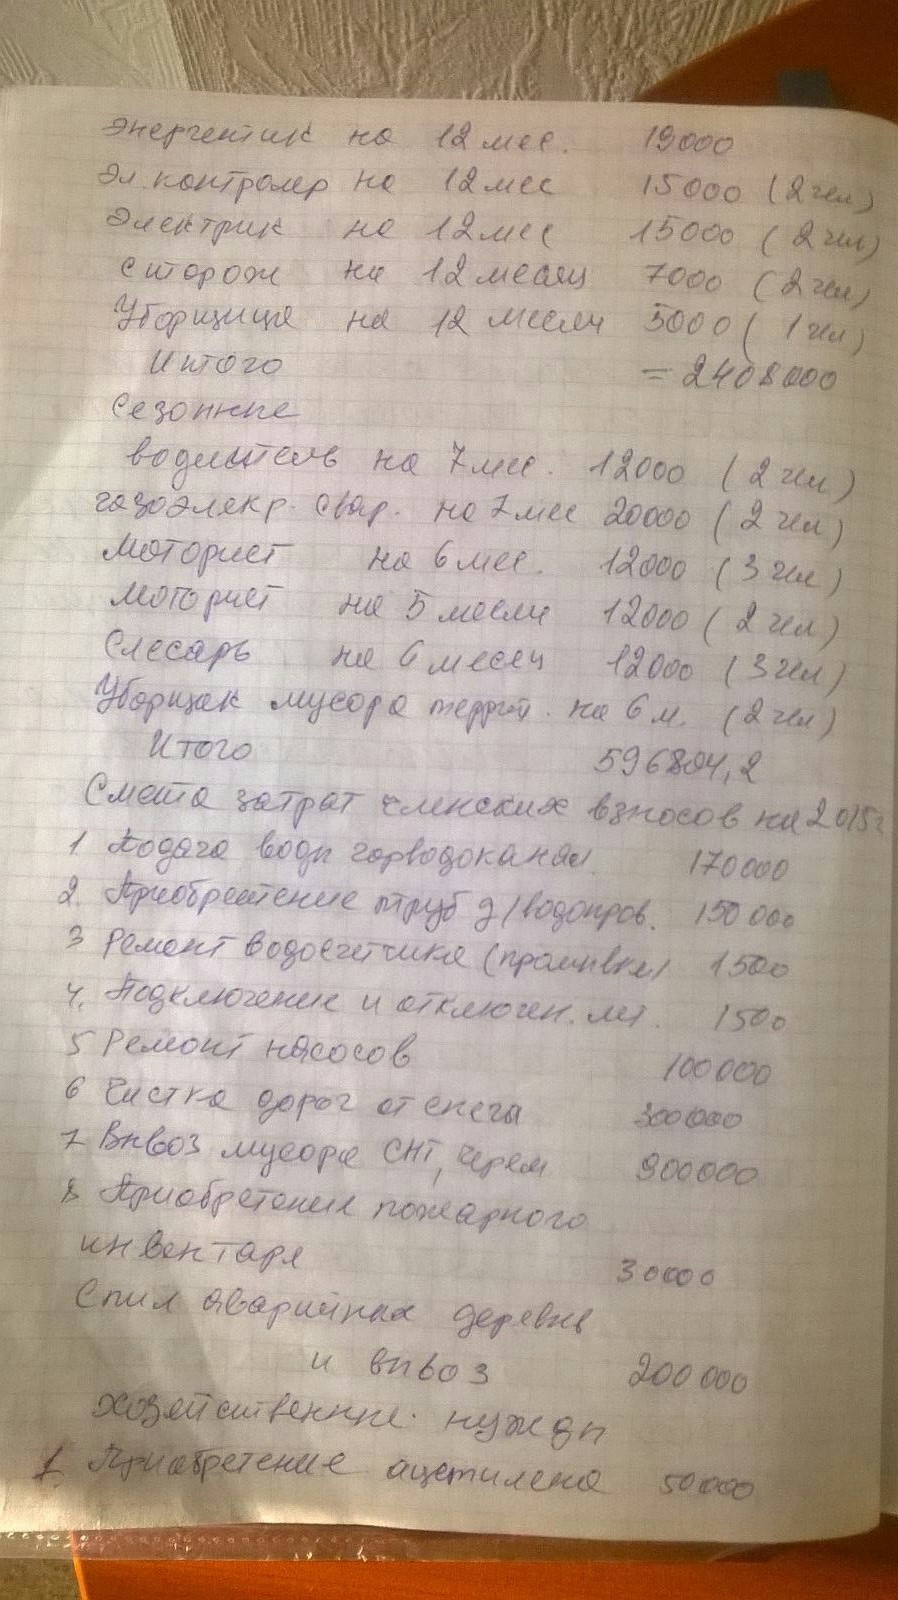 Энергетик на 12 мес. 19000
Эл. контролер на 12 мес 15000 (2 чел)
Электрик на 12 мес 15000 (2 чел)
сторож на 12 месяц 7000 (2 чел)
Уборщица на 12 месяч 5000 (1 чел)
Итого = 2408000
Сезонные
водитель на 7 мес. 12000 (2 чел)
газоэлекр. свар. на 7 мес 20000 (2 чел)
Моторист на 6 мес. 12000 (3 чел)
Моторист на 5 месяц 12000 (2 чел)
Слесарь на 6 месяц 12000 (3 чел)
Уборщик мусора террит. на 6 м. (2 чел)
Итого 596804,2
Смета затрат членских взносов на 2015г
1 Подача воды горводоканал. 170000
2. Приобретение труб д/водопров. 150000
3 Ремонт водосчетчика 1500
4. Подключение и отключен. 1500
5 Ремонт насосов 100000
6 Чистка дорог от снега 300000
7 Вывоз мусора СНТ, 900000
8 Приобретение пожарного
инвентаря 30000
Спил аварийных деревьв
и вывоз 200000
Хозяйственные нужды
1. Приобретение ацетилена 50000